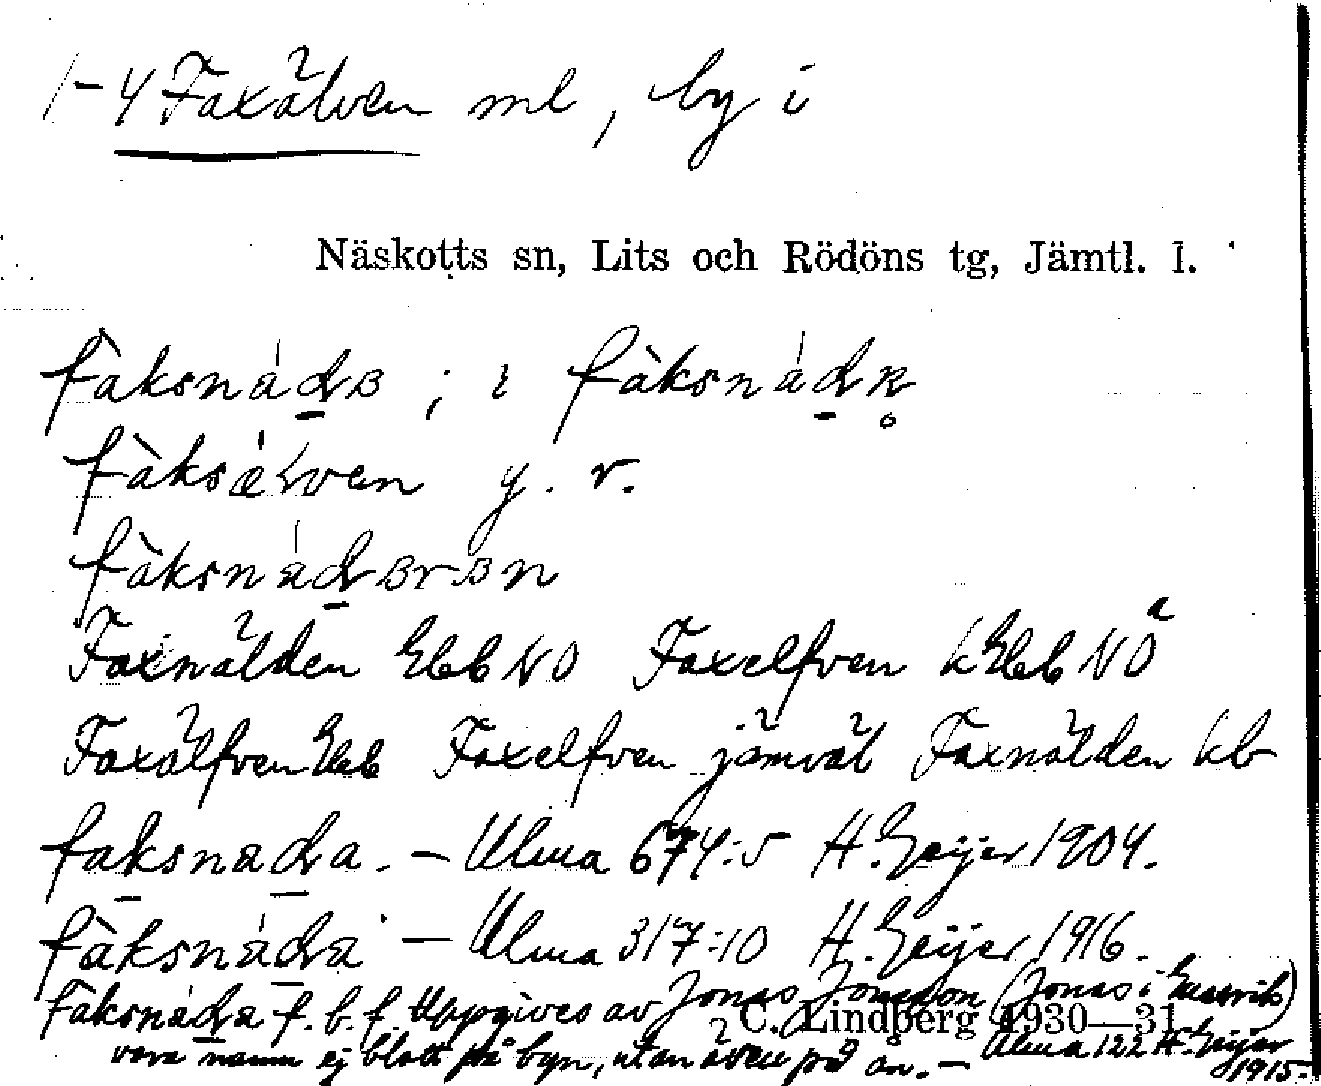 1-4 Faxälven ml, by i
Näskotts sn, Lits och Rödöns tg, Jämtl. l.
fàksnádɞ ; i fàksnádn̥
fàksǽlven y. r.
fàksnádɞrɞn
Faxnälden Ebb NO Faxelfven LEbb NO a
Faxälfven Ebb Faxelfven jämväl Faxnälden kb
faksnada. — Ulma 674:5 H. Geijer 1904.
fàksnáda — Ulma 317:10 H. Geijer 1916.
fàksnáda f. b. f. Uppgives av Jonas Jonsson (Jonas i
C. Lindberg 1930—31
vara namn ej blott på byn, utan även på ån. — Ulma 122 H. Geijer
1915.